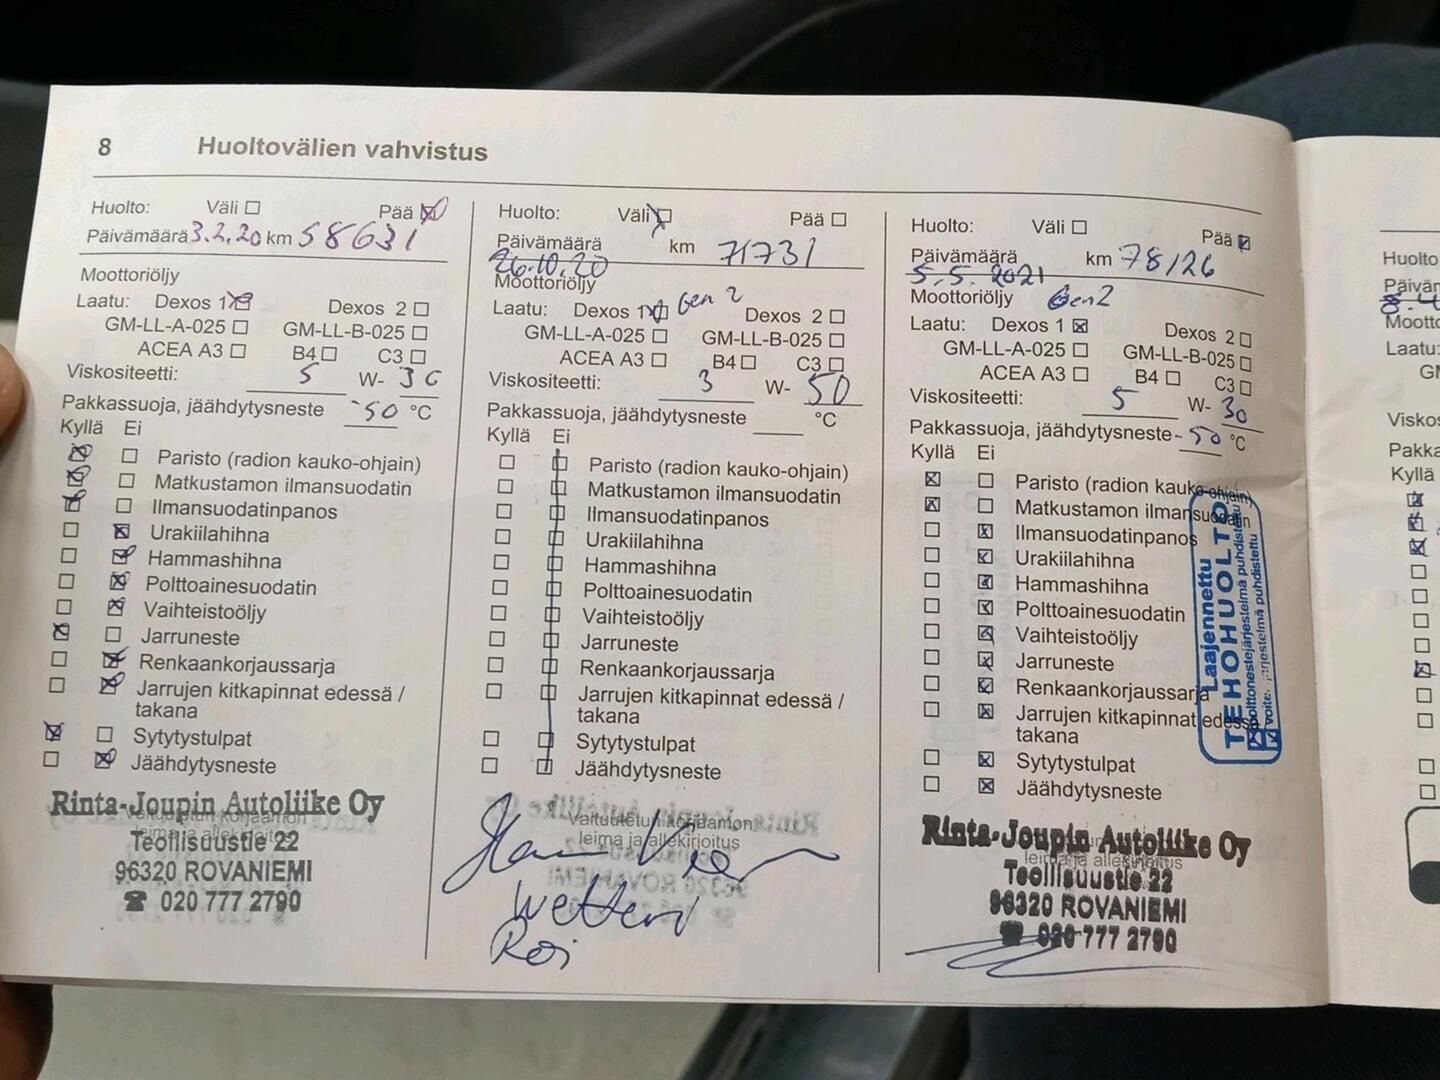 8 Huoltovälien vahvistus
Huolto: Väli Pää
Päivämäärä 3.2.20 km 58631
Moottoriöljy
Laatu: Dexos 1 Dexos 2
GM-LL-A-025 GM-LL-B-025
ACEA A3 B4 C3
Viskositeetti: 5 W- 30
Pakkassuoja, jäähdytysneste -50 °C
Kyllä Ei
Paristo (radion kauko-ohjain)
Matkustamon ilmansuodatin
Ilmansuodatinpanos
Urakiilahihna
Hammashihna
Polttoainesuodatin
Vaihteistoöljy
Jarruneste
Renkaankorjaussarja
Jarrujen kitkapinnat edessä /
takana
Sytytystulpat
Jäähdytysneste
Rinta-Joupin Autoliike Oy
Teollisuustie 22
96320 ROVANIEMI
☎ 020 777 2790
Huolto: Väli Pää
Päivämäärä km 71731
26.10.20
Moottoriöljy
Laatu: Dexos 1 Gen 2 Dexos 2
GM-LL-A-025 GM-LL-B-025
ACEA A3 B4 C3
Viskositeetti: 3 W- 50
Pakkassuoja, jäähdytysneste °C
Kyllä Ei
Paristo (radion kauko-ohjain)
Matkustamon ilmansuodatin
Ilmansuodatinpanos
Urakiilahihna
Hammashihna
Polttoainesuodatin
Vaihteistoöljy
Jarruneste
Renkaankorjaussarja
Jarrujen kitkapinnat edessä /
takana
Sytytystulpat
Jäähdytysneste
Valtuutetun korjaamon
leima ja allekirjoitus
Wetteri
Roi
Huolto: Väli Pää
Päivämäärä km 78126
5.5.2021
Moottoriöljy Gen2
Laatu: Dexos 1 Dexos 2
GM-LL-A-025 GM-LL-B-025
ACEA A3 B4 C3
Viskositeetti: 5 W- 30
Pakkassuoja, jäähdytysneste -50 °C
Kyllä Ei
Paristo (radion kauko-ohjain)
Matkustamon ilmansuodatin
Ilmansuodatinpanos
Urakiilahihna
Hammashihna
Polttoainesuodatin
Vaihteistoöljy
Jarruneste
Renkaankorjaussarja
Jarrujen kitkapinnat edessä
takana
Sytytystulpat
Jäähdytysneste
Laajennettu
TEHOHUOLTO
polttonestejärjestelmä puhdistettu
järjestelmä puhdistettu
leima ja allekirjoitus
Rinta-Joupin Autoliike Oy
Teollisuustie 22
96320 ROVANIEMI
☎ 020 777 2790
Huolto
Laatu:
Kyllä